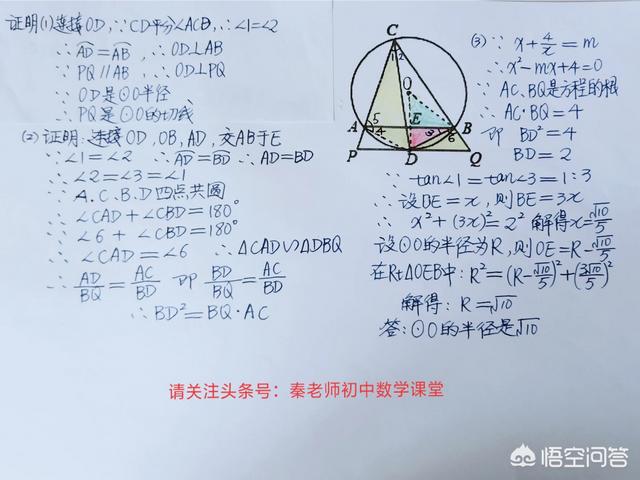 证明(1)连接OD,∵CD平分∠ACB,∴∠1=∠2
∴AD=AB,∴OD⊥AB
∵PQ∥AB,∴OD⊥PQ
∵OD是⊙O半径
∴PQ是⊙O的切线
(2)证明:连接OD,OB,AD,交AB于E
∵∠1=∠2 ∴AD=BD ∴AD=BD
∴∠2=∠3=∠1
∵A.C.B.D四点共圆
∴∠CAD+∠CBD=180°
∵∠6+∠CBD=180°
∴∠CAD=∠6 ∴△CAD∽△DBQ
∴AD/BQ=AC/BD 即BD/BQ=AC/BD
∴BD²=BQ·AC
(3)∵x+4/x=m
∴x²-mx+4=0
∵AC、BQ是方程的根
∴AC·BQ=4
即 BD²=4
BD=2
∵tan∠1=tan∠3=1:3
∴设DE=x,则BE=3x
∴x²+(3x)²=2² 解得x=√10/5
设⊙O的半径为R,则OE=R-√10/5
在Rt△OEB中:R²=(R-√10/5)²+(3√10/5)²
解得:R=√10
答:⊙O的半径是√10
C
1 2
O
A 5 4 E 3 B 6
P D Q
请关注头条号：秦老师初中数学课堂
悟空问答